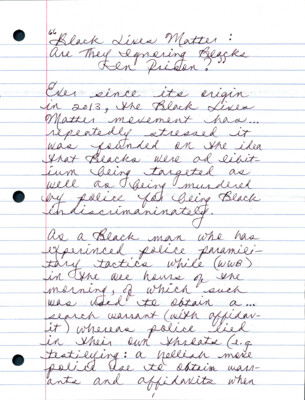 "Black Lives Matter:
Are They Ignoring Blacks
In Prison?
Ever since its origin
in 2013, the Black Lives
Matter movement has...
repeatedly stressed it
was founded on the idea
that Blacks were ad libit-
ium being targeted as
well as being murdered
by police for being Black
indiscrimaninately.
As a Black man who has
experinced police paramili-
tary tactics while (WWB)
in the wee hours of the
morning, of which such
was used to obtain a...
search warrant (with affidav-
it) whereas police lied
in their own threats (e.g.
testilying: a hellish move
police use to obtain warr-
ants and affidavits when